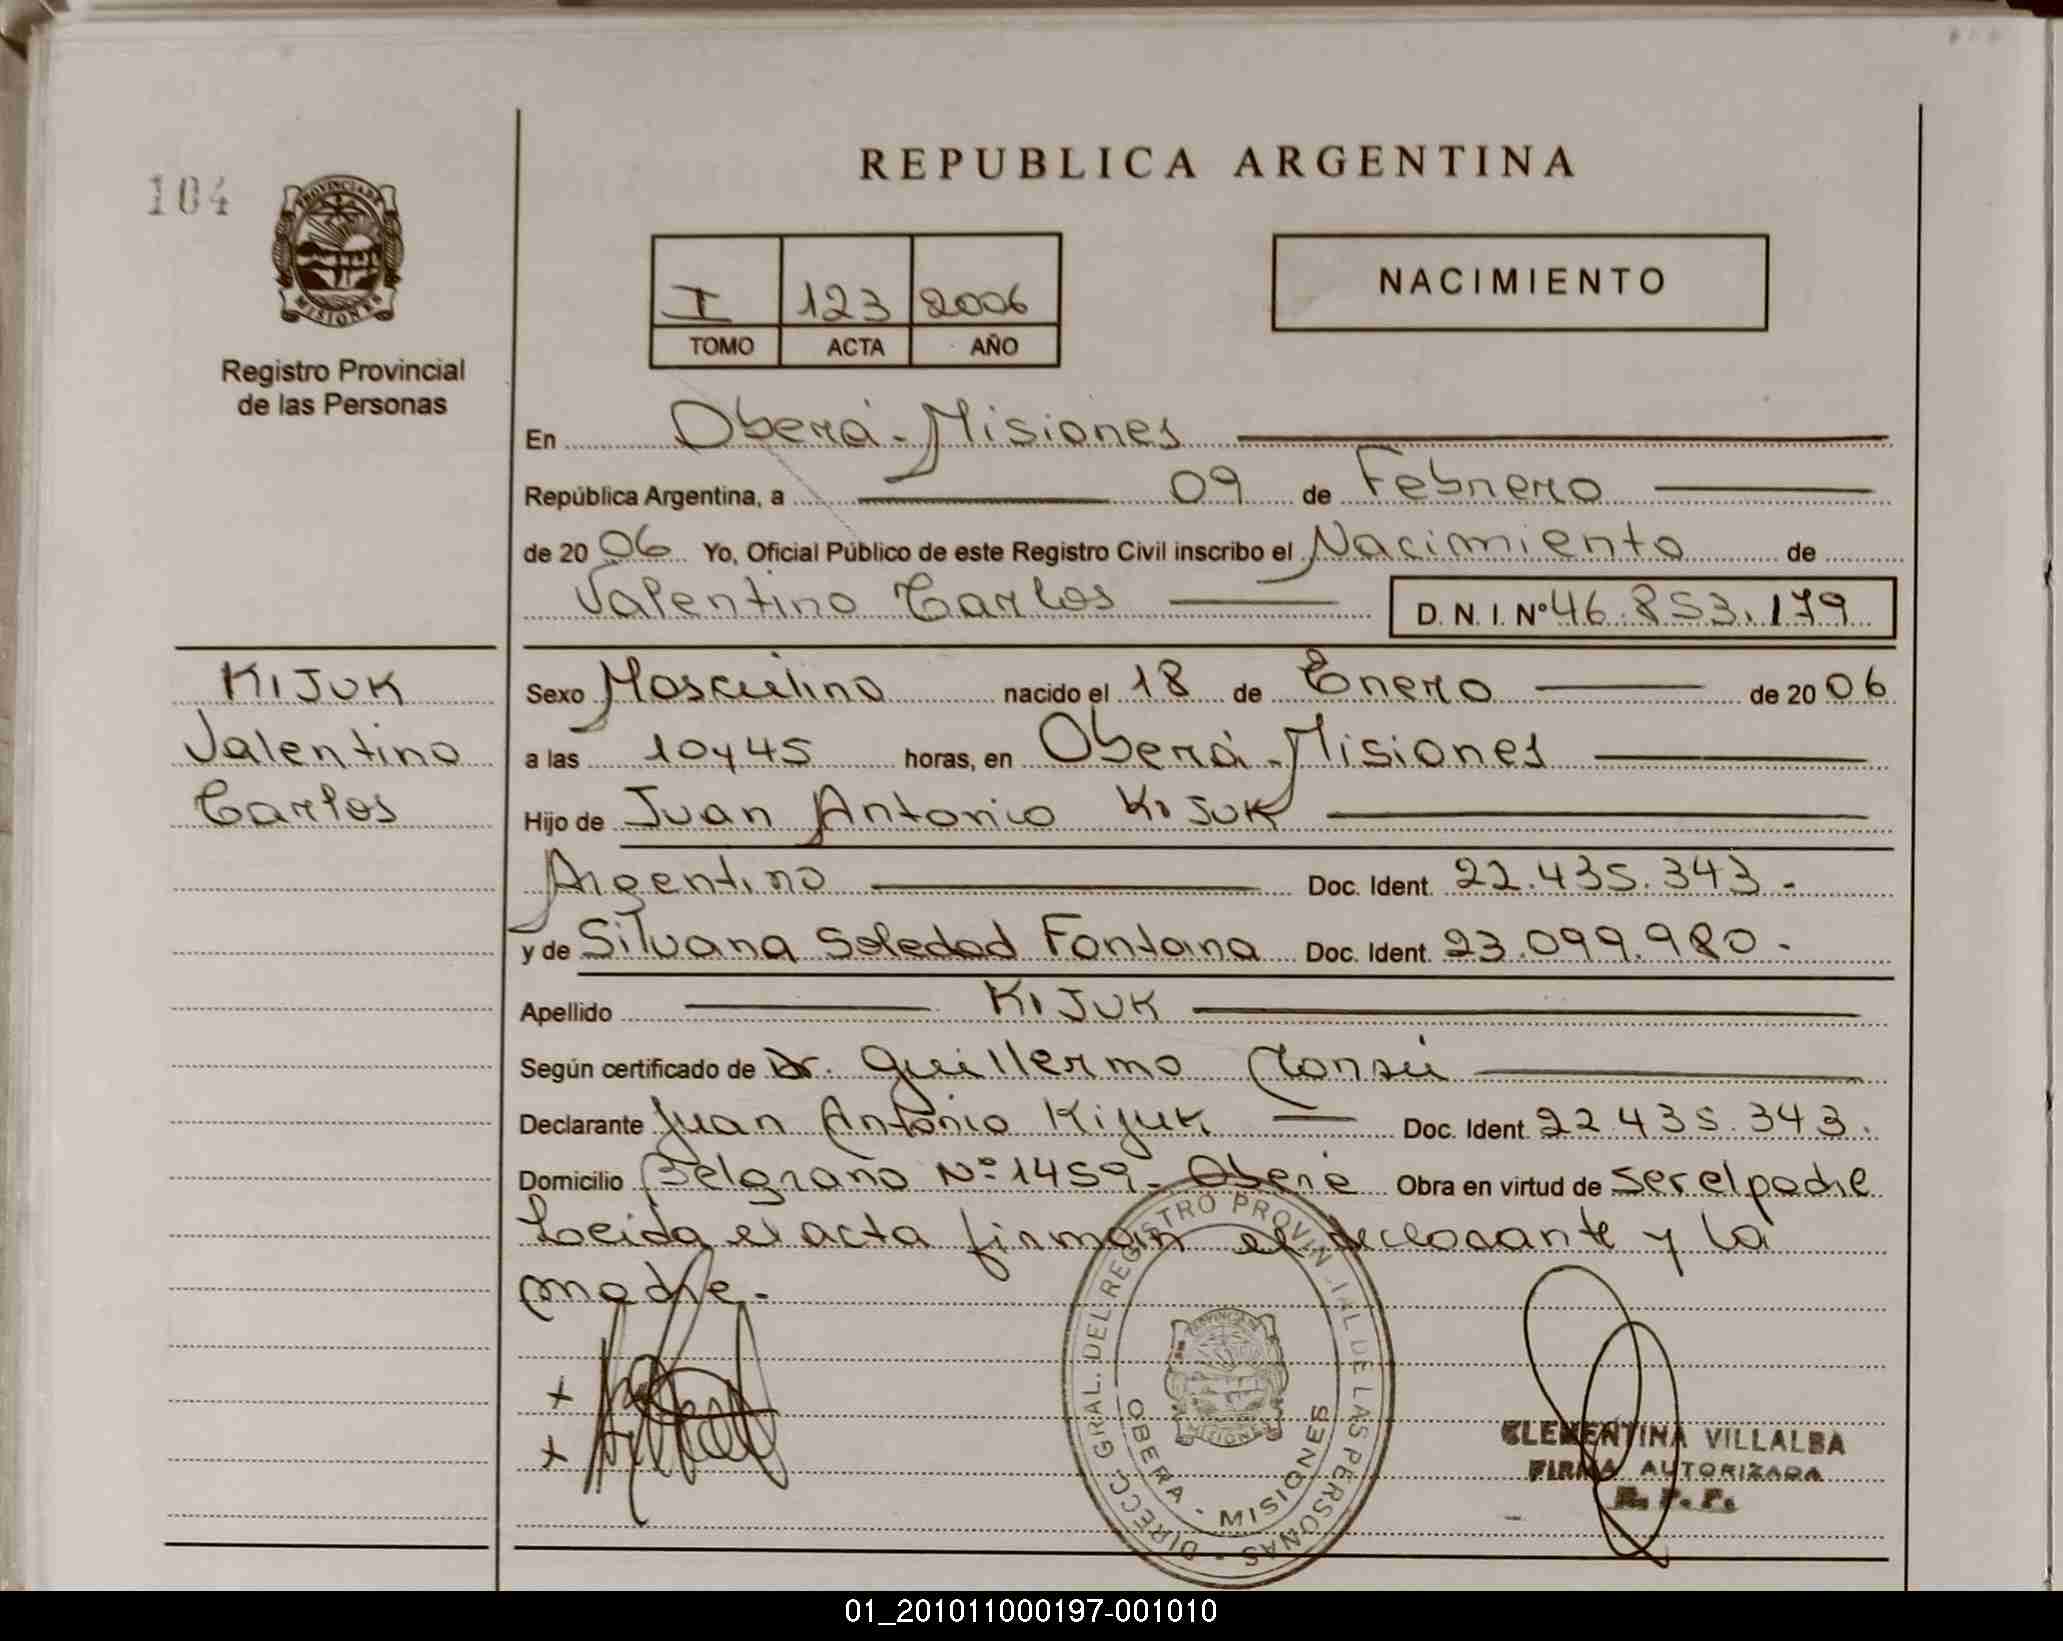 104
PROVINCIA DE
MISIONES
Registro Provincial
de las Personas
REPUBLICA ARGENTINA
I 123 2006
TOMO ACTA AÑO
NACIMIENTO
En Oberá - Misiones
República Argentina, a 09 de Febrero
de 2006 Yo, Oficial Público de este Registro Civil inscribo el Nacimiento de
Valentino Carlos D. N. I. Nº 46.853.179
KIJUK
Valentino
Carlos
Sexo Masculino nacido el 18 de Enero de 2006
a las 10 y 45 horas, en Oberá - Misiones
Hijo de Juan Antonio KIJUK
Argentino Doc. Ident. 22.435.343.-
y de Silvana Soledad Fontana Doc. Ident. 23.099.980.-
Apellido KIJUK
Según certificado de Dr. Guillermo
Declarante Juan Antonio Kijuk Doc. Ident. 22.435.343.
Domicilio Belgrano Nº 1459 - Oberá Obra en virtud de ser el padre
Leida el acta firman el declarante y la
madre.-
DIRECC. GRAL. DEL REGISTRO PROVINCIAL DE LAS PERSONAS
OBERA - MISIONES
CLEMENTINA VILLALBA
FIRMA AUTORIZADA
R. P. P.
01_201011000197-001010